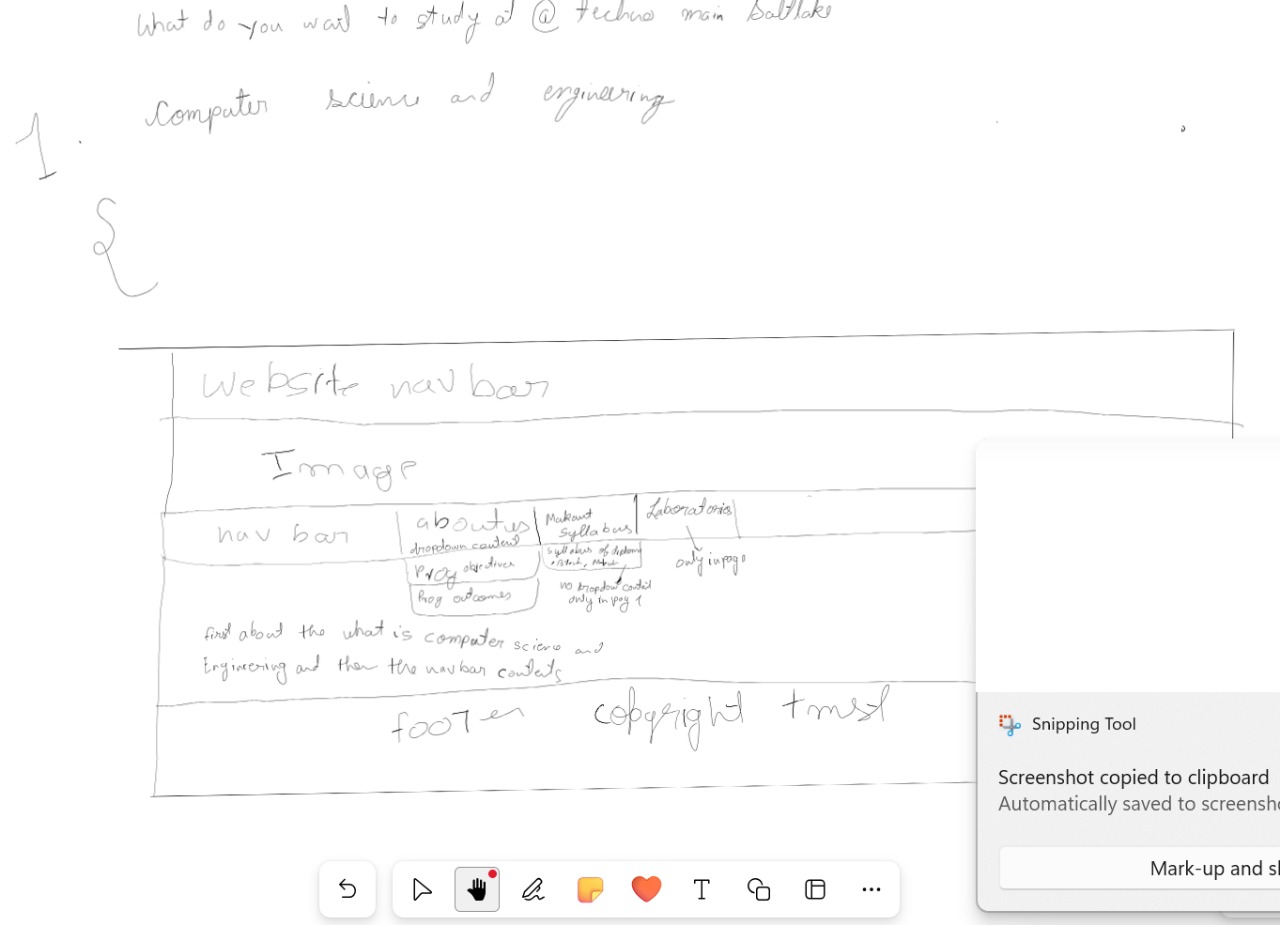 What do you wait to study at @ techno main Saltlake
Computer science and engineering
1.
Website navbar
Image
nav bar
about us
dropdown content
Prog objectives
Prog outcomes
Makaut
Syllabus
Syllabus of diploma
no dropdown content
only in pag 1
Laboratories
only in page
first about the what is computer science and
Engineering and then the navbar contents
footer copyright tmsl
Snipping Tool
Screenshot copied to clipboard
Automatically saved to screensh
Mark-up and s
T